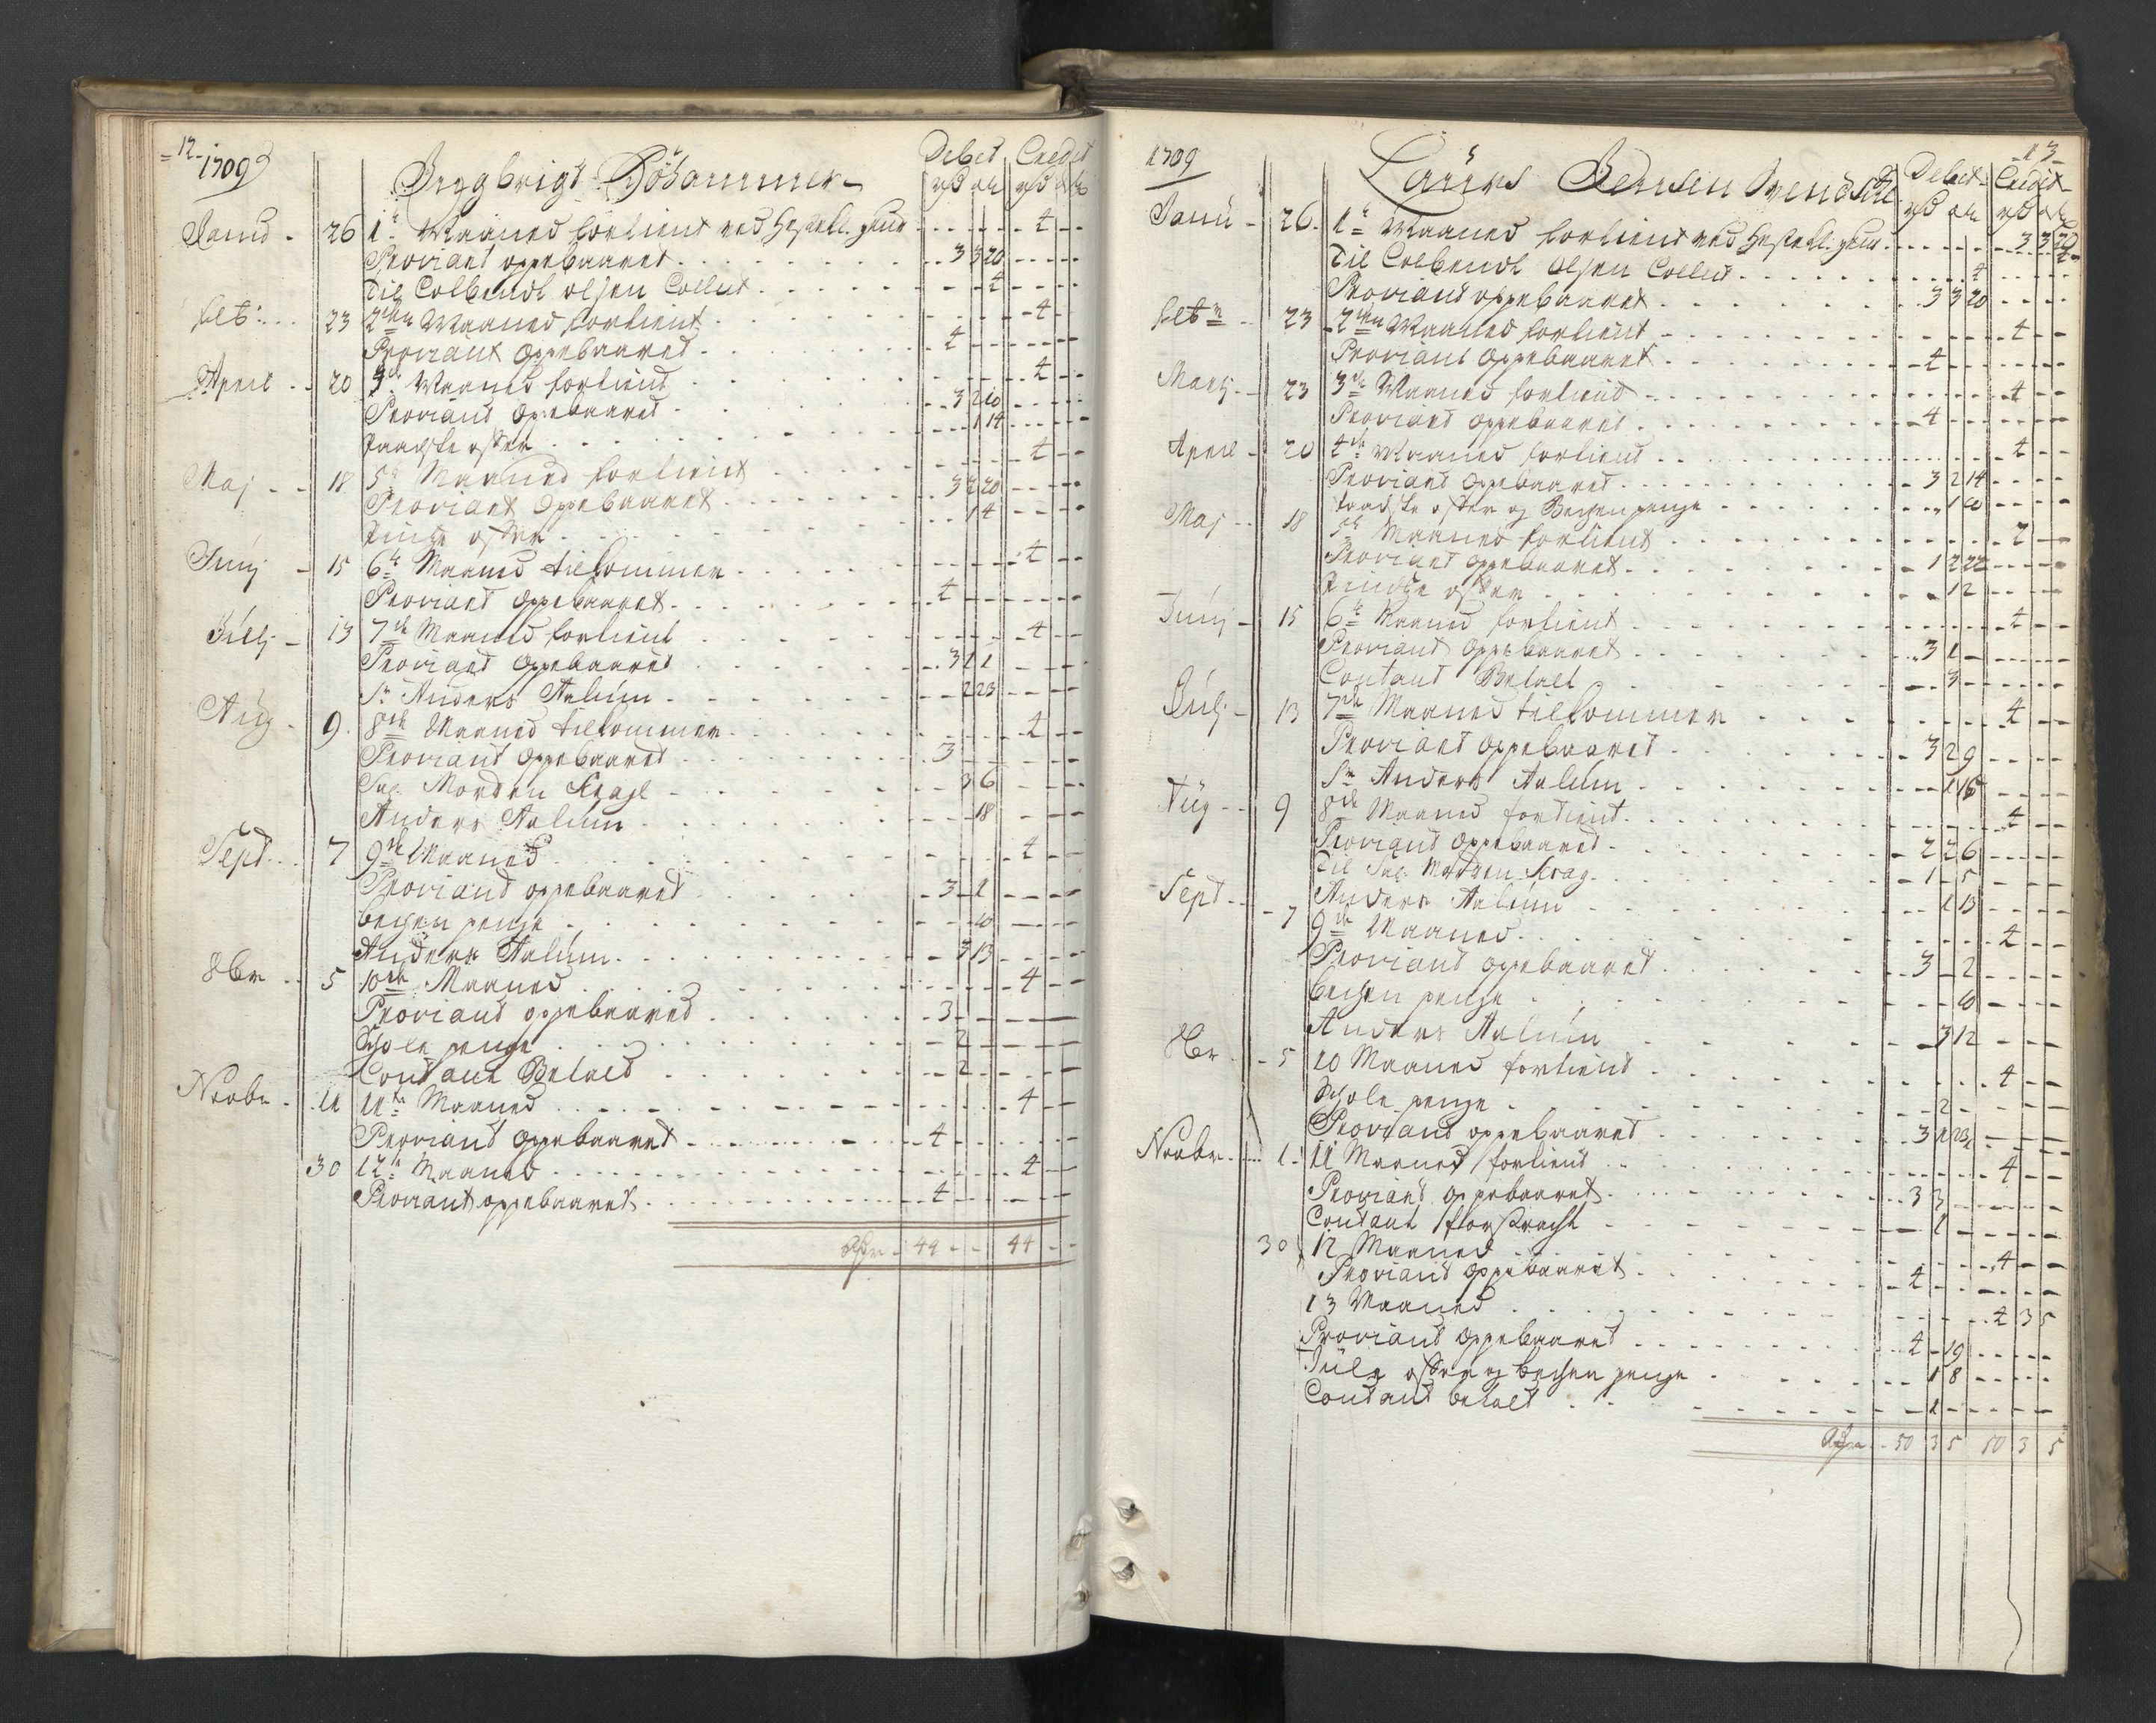 12
1709
Ingbrigt Röhammer
Debet Credit
rd ort rd ort
Janu 26 1te Maaned fortient ved 4
Proviant oppebaaret 3 3 20
Til Colbendt olsen Collet 4
feb: 23 2den Maaned fortient 4
Proviant Oppebaaret 4
April 20 Maaned fortient 4
Proviant Opebaaret 3 2 10
offer 1 14
Maj 18 5te Maaned fortient 4
Proviant Oppebaaret 3 2 20
Pintze offer 1 4
Junj 15 6te Maaned tilkommer 4
Proviant Oppebaaret 4
Julj 13 7de Maaned fortient 4
Proviant Oppebaaret 3 1 1
Sr Anders Aalum 2 23
Aug 9 8de Maaned tilkommer 4
Proviant Oppebaaret 3
Morten Kragh 3 6
Anders Aalum 18
Sept 7 9de Maaned 4
Proviant oppebaaret 3 1
becken penge 10
Anders Aalum 3 13
8br 5 10de Maaned 4
Proviant oppebaaret 3
Schole penge 2
Contant Betalt 2
Novbr 11te Maaned 4
Proviant Oppebaaret 4
30 12te Maaned 4
Proviant oppebaaret 4
44 44
13
1709
Laurs Jensen
Debet Credit
rd ort rd ort
Janu 26 1te Maaned fortient ved 3 3 20
Til Colbendt Olsen Collet 4
Proviant oppebaaret 3 3 20
feb 23 2den Maaned fortient 4
Proviant Oppebaaret 4
Martj 23 3de Maaned fortient 4
Proviant Oppebaaret 4
April 20 4de Maaned fortient 4
Proviant Oppebaaret 3 2 14
offer og Becken penge 1 10
Maj 18 5te Maaned fortient 2
Proviant Oppebaaret 1 2 22
Pintze offer 12
Junj 15 6te Maaned fortient 4
Proviant Oppebaaret 3 1
Contant Betalt 3
Julj 13 7de Maaned tilkommer 4
Proviant Oppebaaret 3 2 9
Sr Anders Aalum 1 15
Aug 9 8de Maaned fortient 4
Proviant Oppebaaret 2 2 6
Til Morten Krag 1 5
Anders Aalum 1 13
Sept 7 9de Maaned 4
Proviant oppebaaret 3 2
becken penge 10
Anders Aalum 3 12
8br 5 10 Maaned fortient 4
Schole penge 2
Proviant oppebaaret 3 1
Novbr 1 11 Maaned fortient 4
Proviant oppebaaret 3 3
Contant forstracht 1
30 12 Maaned 4
Proviant oppebaaret 4
13 Maaned 4 3 5
Proviant Oppebaaret 4 19
Jule offer og becken penge 1 8
Contant betalt 1
50 3 5 50 3 5